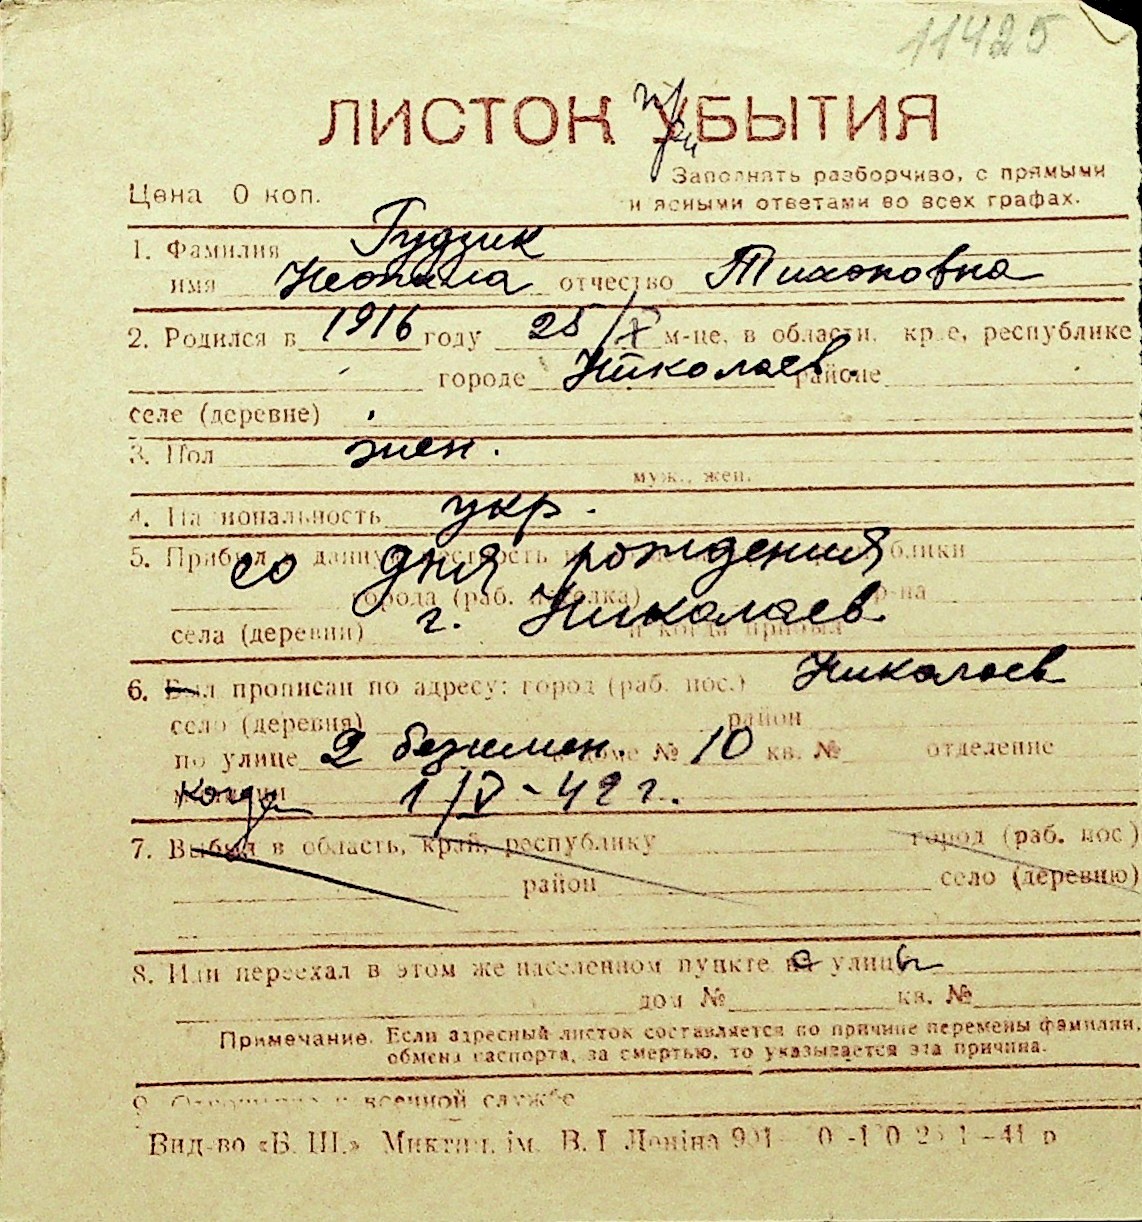 11425
ЛИСТОК УБЫТИЯ
при
Цена 0 коп.
Заполнять разборчиво, с прямыми
и ясными ответами во всех графах.
1. Фамилия Гудзик
имя Неонила отчество Тихоновна
2. Родился в 1916 году 25/X м-це, в области, крае, республике
городе Николаев. районе
селе (деревне)
3. Пол жен.
муж., жен.
4. Национальность укр.
5. Прибыл в данную местность со дня рождения
города (раб. поселка) р-на
г. Николаев
села (деревни) и когда прибыл
6. Был прописан по адресу: город (раб. пос.) Николаев
село (деревня) район
по улице 2 безимен. в доме № 10 кв. № отделение
милиции когда 1/V-42 г.
7. Выбыл в область, край, республику город (раб. пос.)
район село (деревню)
8. Или переехал в этом же населенном пункте с улицы
дом № кв. №
Примечание. Если адресный листок составляется по причине перемены фамилии,
обмена паспорта, за смертью, то указывается эта причина.
9. Отношение к военной службе
Вид-во «Б. Ш.» Микт ім. В. І. Леніна